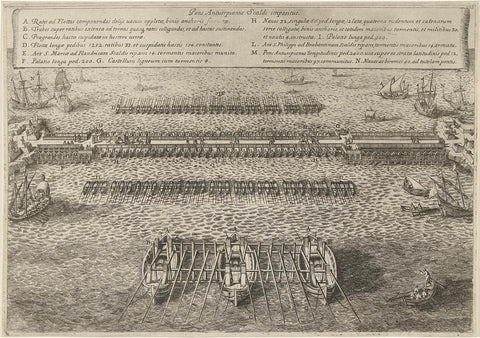 Pons Antuerpiensis Scaldi impositus.
A. Rates ad Flottas componendas dolijs vacuis suppletæ, binis anchoris
B. Trabes super ratibus extensæ ad temas quasq rates colligandas, et ad hastas sustinendas.
C. Propendulæ hastæ cuspidatæ in hostem versæ.
D. Flotæ longæ pedibus 1252. ratibus 33. et cuspidatis hastis constantes.
E. Arx S. Mariæ ad Flandricam Scaldis ripam, 14. tormentis maioribus munita.
F. Palatio longa ped. 200. G. Castellum ligneum cum tormentis
H. Naves 32. singulæ 66. ped. longæ, 12. latæ, quaternis rudentibus et catenarum
serie colligatæ, binis anchoris, et totidem maioribus tormentis, et militibus 30.
et nautis 4. instructæ. I. Palatio ped. 900.
L. Arx S. Philippi ad Brabantinam Scaldis ripam, tormentis maioribus armata.
M. Pons Antuerpianus longitudinis ped. 2400. via super eo strata latitudinis ped. 12.
tormentis maioribus 97. communitus. N. Naves ac biremes 40. ad tutelam pontis.
D